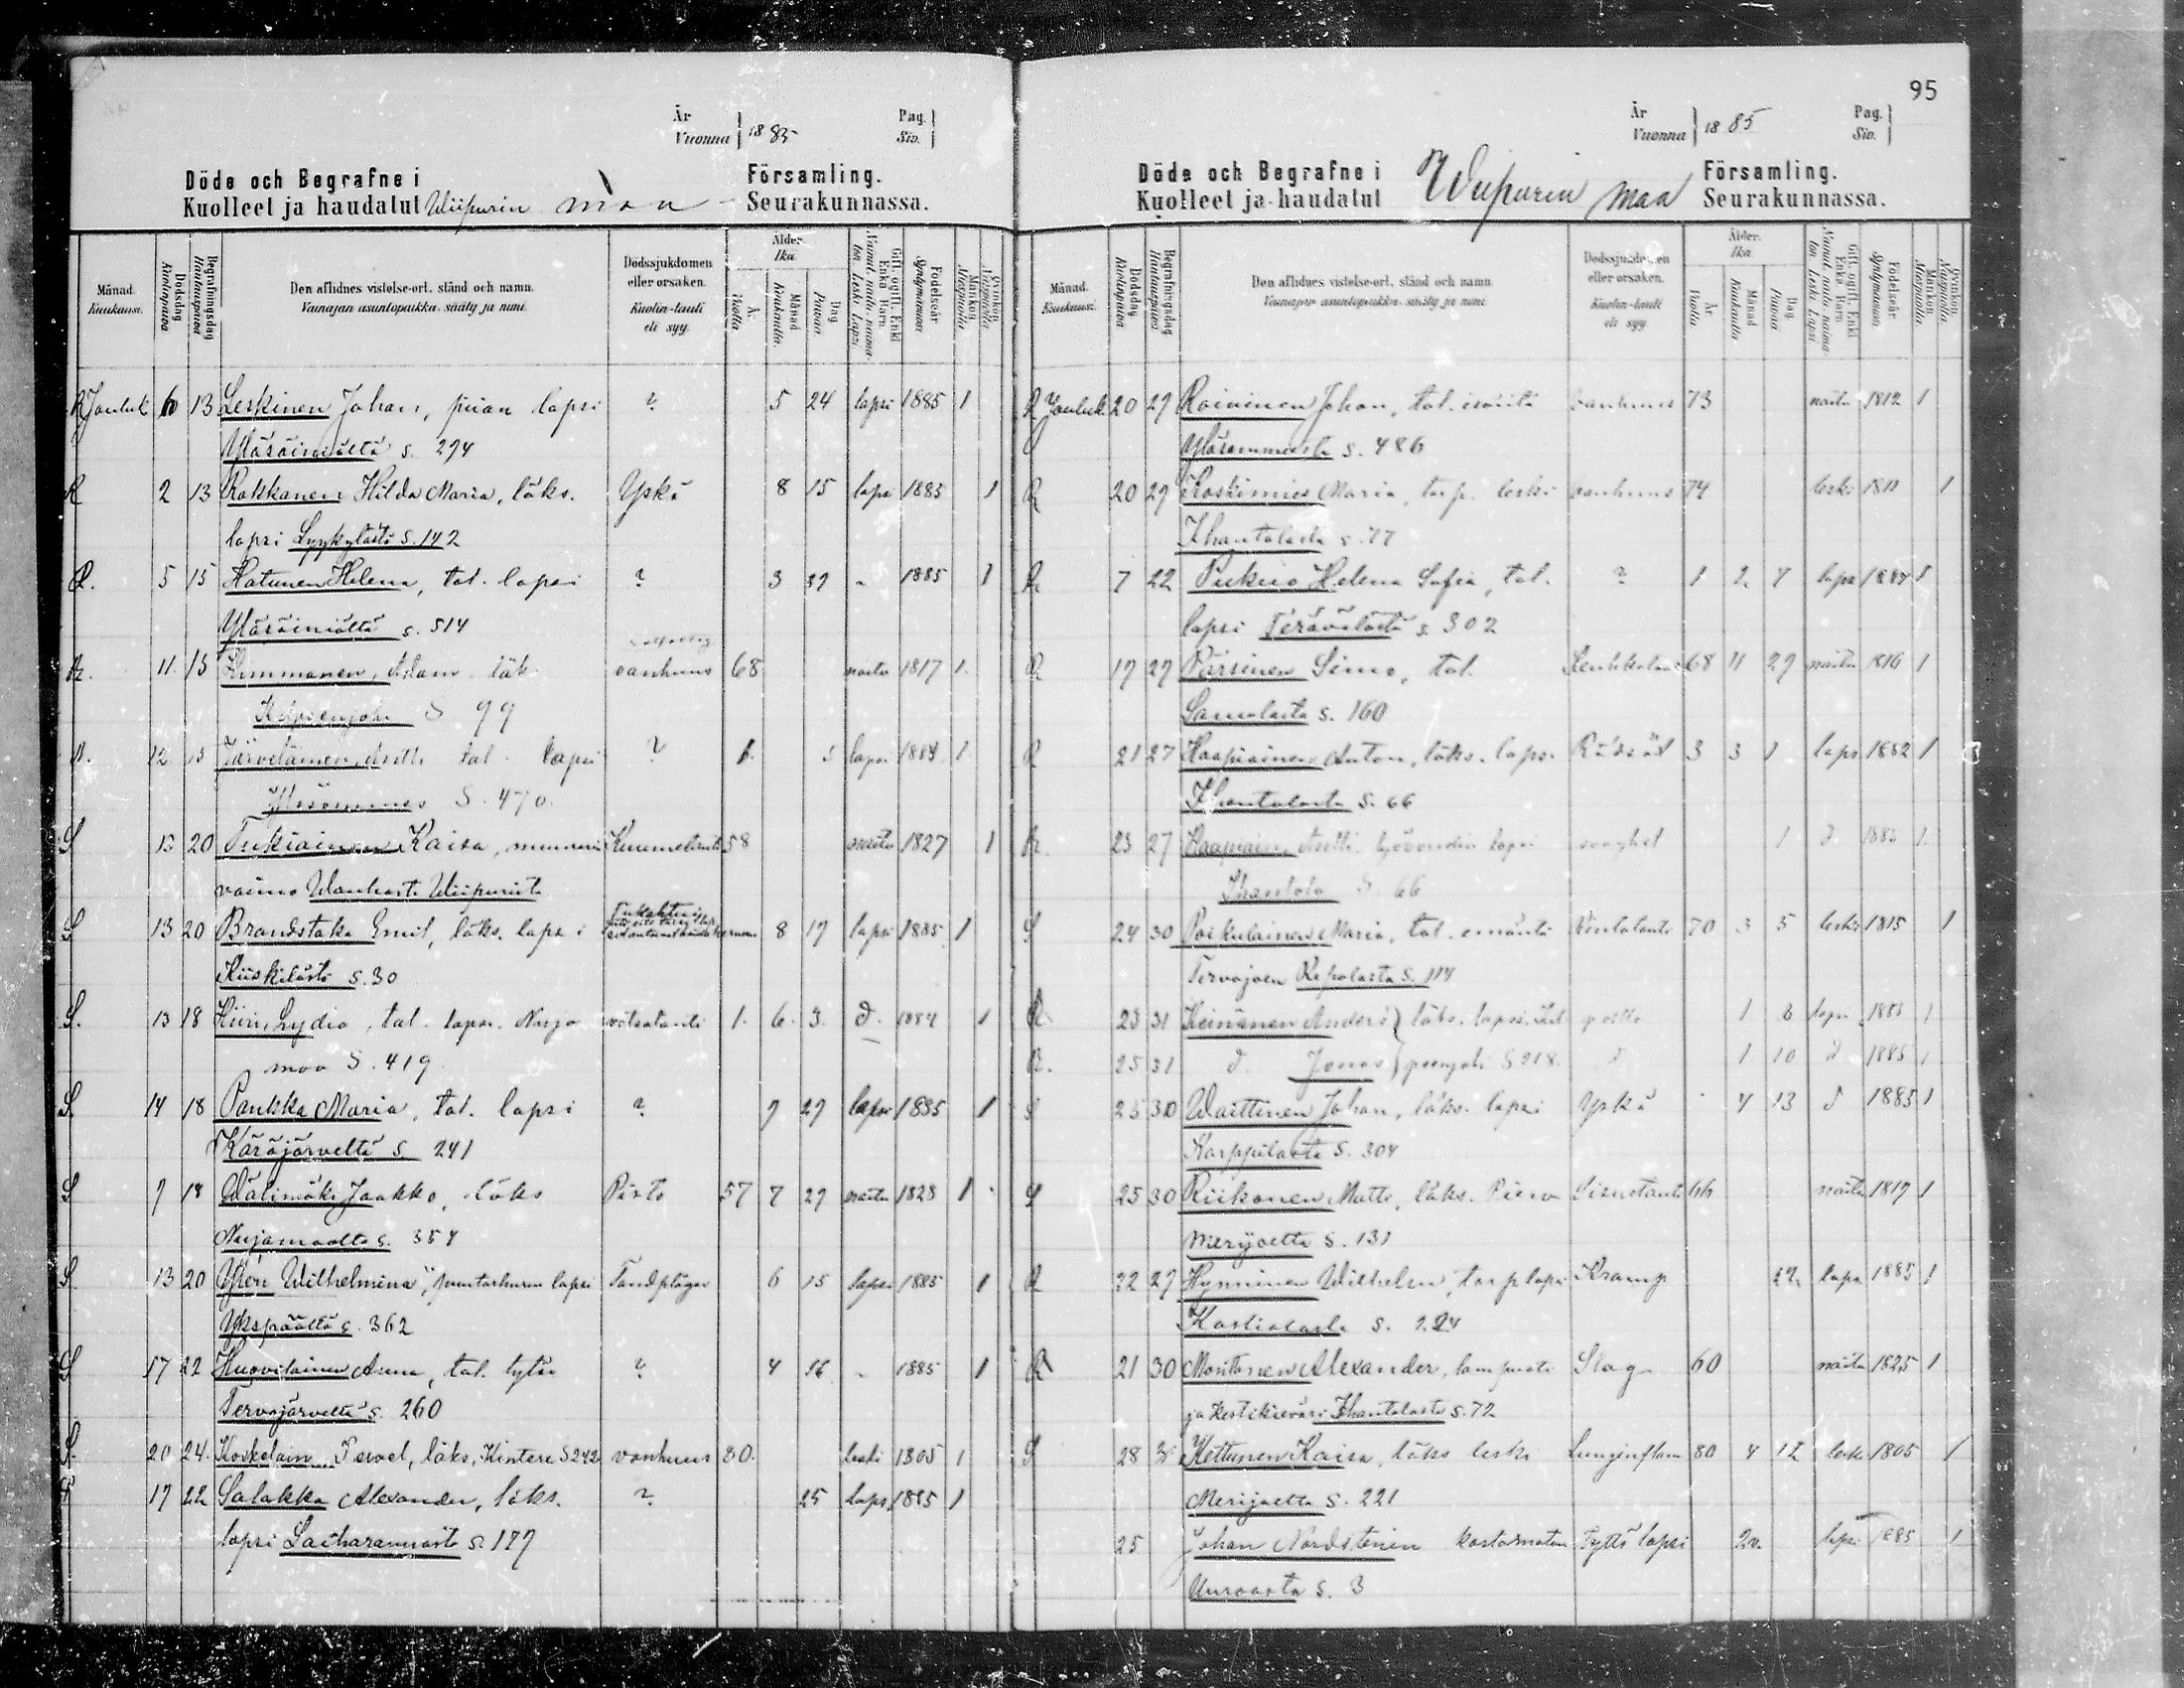 95
År
Vuonna 1885
Pag.
Siv.
Döde och Begrafne i Församling.
Kuolleet ja haudatut Wiipurin maa Seurakunnassa.
Månad.
Kuukausi.
Dödsdag
Kuolinpäivä
Begrafningsdag
Hautauspäivä
Den aflidnes vistelse-ort, stånd och namn.
Vainajan asuntopaikka, sääty ja nimi
Dödssjukdomen
eller orsaken.
Kuolin-tauti
eli syy.
Ålder.
Ikä
År.
Vuotta
Månad
Kuukautta.
Dag
Päivää.
Gift, ogift, Enkl.
Enka, Barn.
Födelseår
Syntymävuosi
Mankön
Miespuolia
Qvinkön
Naispuolia
R Jouluk 6 13 Leskinen Johan, piian lapsi ? 5 24 lapsi 1885 1
Yläsäiniöltä s. 274
R 2 13 Rakkanen Hilda Maria, läks. Yskä 8 15 lapsi 1885 1
lapsi Lyykylästä s. 142
R. 5 15 Hatunen Helena, tal. lapsi ? 3 1885 1
Yläsäiniöltä s. 514
R. 11. 13 Kimmanen, Adam läk. vanhuus 68 naitu 1817 1.
S 99
R. 12 13 Järveläinen, Antti tal. lapsi ? 1. lapsi 1884 1
Yläsommee S. 470.
S 12 20 Tukiainen Kaisa, muurarin Kuumetauti 58 naitu 1827 1
vaimo Wanhasta Wiipurista
S 13 20 Brandstaka Emil, läks. lapsi 8 17 lapsi 1885 1
Kiiskilästä s. 30
S. 13 18 Kiiri, Lydia, tal. lapsi. Nuija vatsatauti 1. 6. 3. d. 1884 1
maa S. 419
S 14 18 Paukka Maria, tal. lapsi ? 7 27 lapsi 1885 1
Käräjärveltä s. 241
S 7 18 Wälimäki Jaakko, läks Pisto 57 7 27 naitu 1828 1
Nuijamaalta s. 354
S 13 20 Ylén Wilhelmina, puutarhurin lapsi Tandplågor 6 15 lapsi 1885 1
Ykspäältä s. 362
S 17 22 Huovilainen Anna, tal. tytär ? 4 16 1885 1
Tervajärveltä s. 260
S. 20 24. Koskelain Tervel, läks, Kintere S 242 vanhuus 80. leski 1805 1
17 22 Salakka Alexander, läks. ? 25 lapsi 1885 1
lapsi Laiharannasta s. 177
År
Vuonna 1885
Pag.
Siv.
Döde och Begrafne i Församling.
Kuolleet ja haudatut Wiipurin maa Seurakunnassa.
Månad.
Kuukausi.
Dödsdag
Kuolinpäivä
Begrafningsdag
Hautauspäivä
Den aflidnes vistelse-ort, stånd och namn.
Vainajan asuntopaikka, sääty ja nimi
Dödssjukdomen
eller orsaken.
Kuolin-tauti
eli syy.
Ålder.
Ikä
År
Vuotta
Månad
Kuukautta
Dag
Päivää
Gift, ogift, Enkl.
Enka, Barn
Födelseår
Syntymävuosi
Mankön
Miespuolia
Qvinkön
Naispuolia
R Jouluk 20 27 Roininen Johan, tal. isäntä vanhuus 73 naitu 1812 1
Yläsommeelta s. 486
R 20 27 Koskimies Maria, torp. leski vanhuus 74 leski 1811 1
Ihantalasta s. 77
R 7 22 Pukuo Helena Sofia, tal. ? 1 2 7 lapsi 1884 1
lapsi Terävälästä s. 302
R 17 27 Pärsinen Simo, tal. 68 11 27 naitu 1816 1
Samolasta s. 160
R 21 27 Haapiainen Anton, läks. lapsi 3 3 1 lapsi 1882 1
Ihantalasta s. 66
R. 23 27 Haapiain, Antti työrendin lapsi svaghet 1 d. 1885 1.
Ihantala S. 66
S 24 30 Poikulainen Maria, tal. emäntä Rintatauti 70 3 5 leski 1815 1
Tervajoen Repolasta s. 114
R 23 31 Keinänen Anders läks. lapsi. 1 8 lapsi 1885 1
R. 25 31 d. Jonas S 218. d 1 10 d 1885 1
S 25 30 Waittinen Johan, läks. lapsi Yskä 4 13 d 1885 1
Karppilasta s. 304
S 25 30 Riikonen Matts, läks. Piero Sisustauti 66 naitu 1819 1
Merijoelta s. 131
R 22 27 Hynninen Wilhelm, torp lapsi Kramp 22 lapsi 1885 1
Kärstilästä s. 224
R 21 30 Montonen Alexander, lampuoti Slag 60 naitu 1825 1
ja kestikievari Ihantalasta s. 72
S 28 31 Kettunen Kaisa, läks leski Lunginflam 80 4 12 leski 1805 1
Merijoelta s. 221
25 Johan Nordstenin kastamaton tyttö lapsi 2v. lapsi 1885 1
Uuraasta s. 3